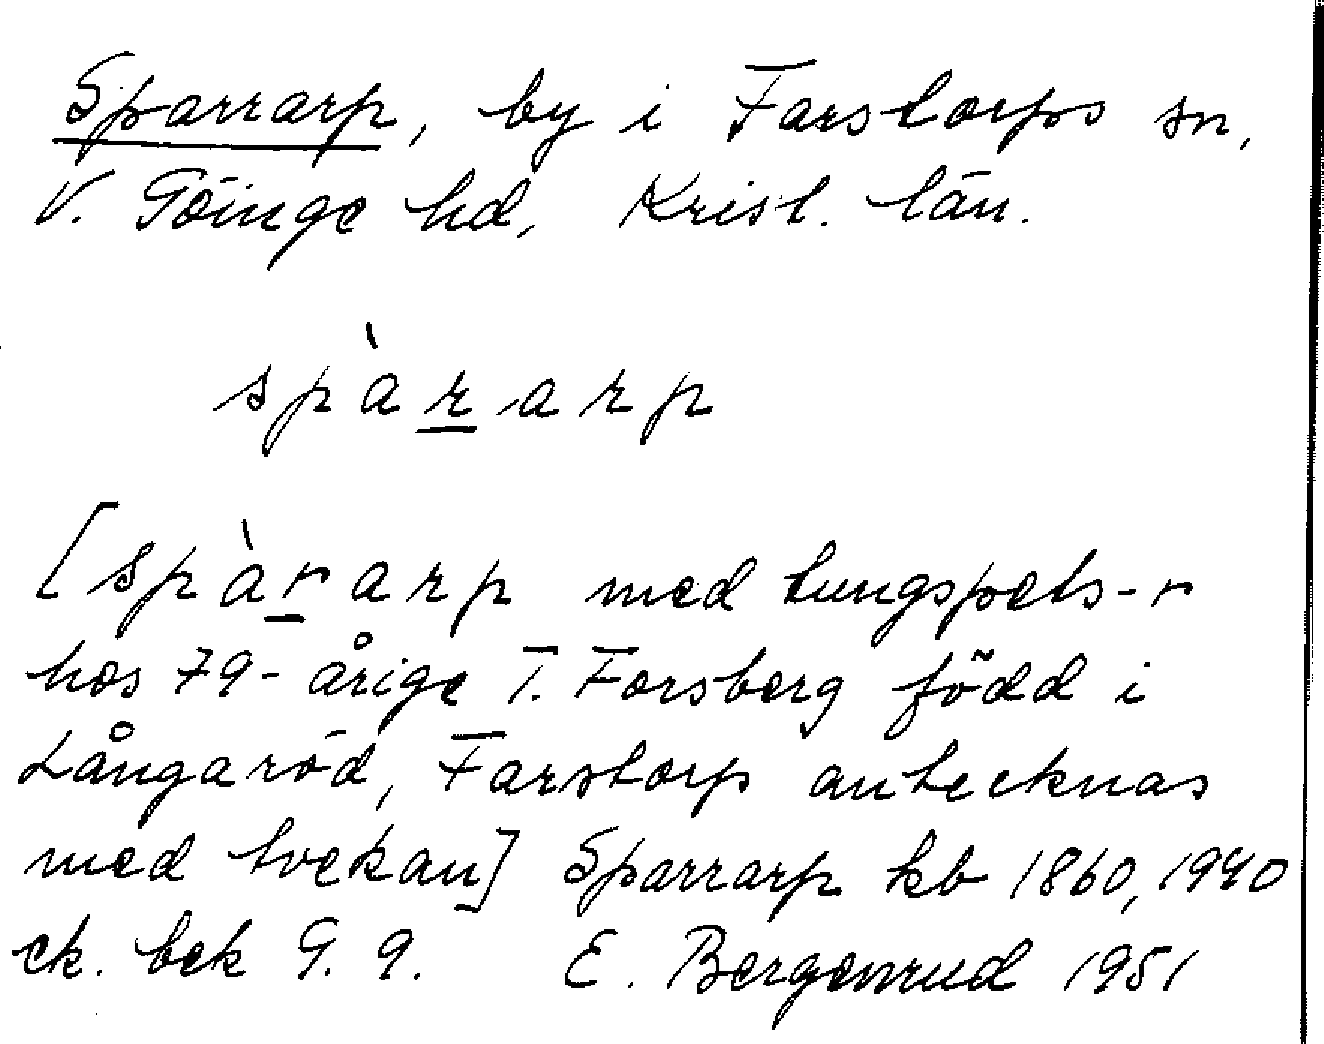 Sparrarp, by i Farstorps sn,
V. Göinge hd, Krist. län.
spàrarp
[spàrarp med tungspets-r
hos 79-årige T. Forsberg född i
Långaröd, Farstorp antecknas
med tvekan] Sparrarp kb 1860, 1940
ek. bek G. 9. E. Bergenrud 1951